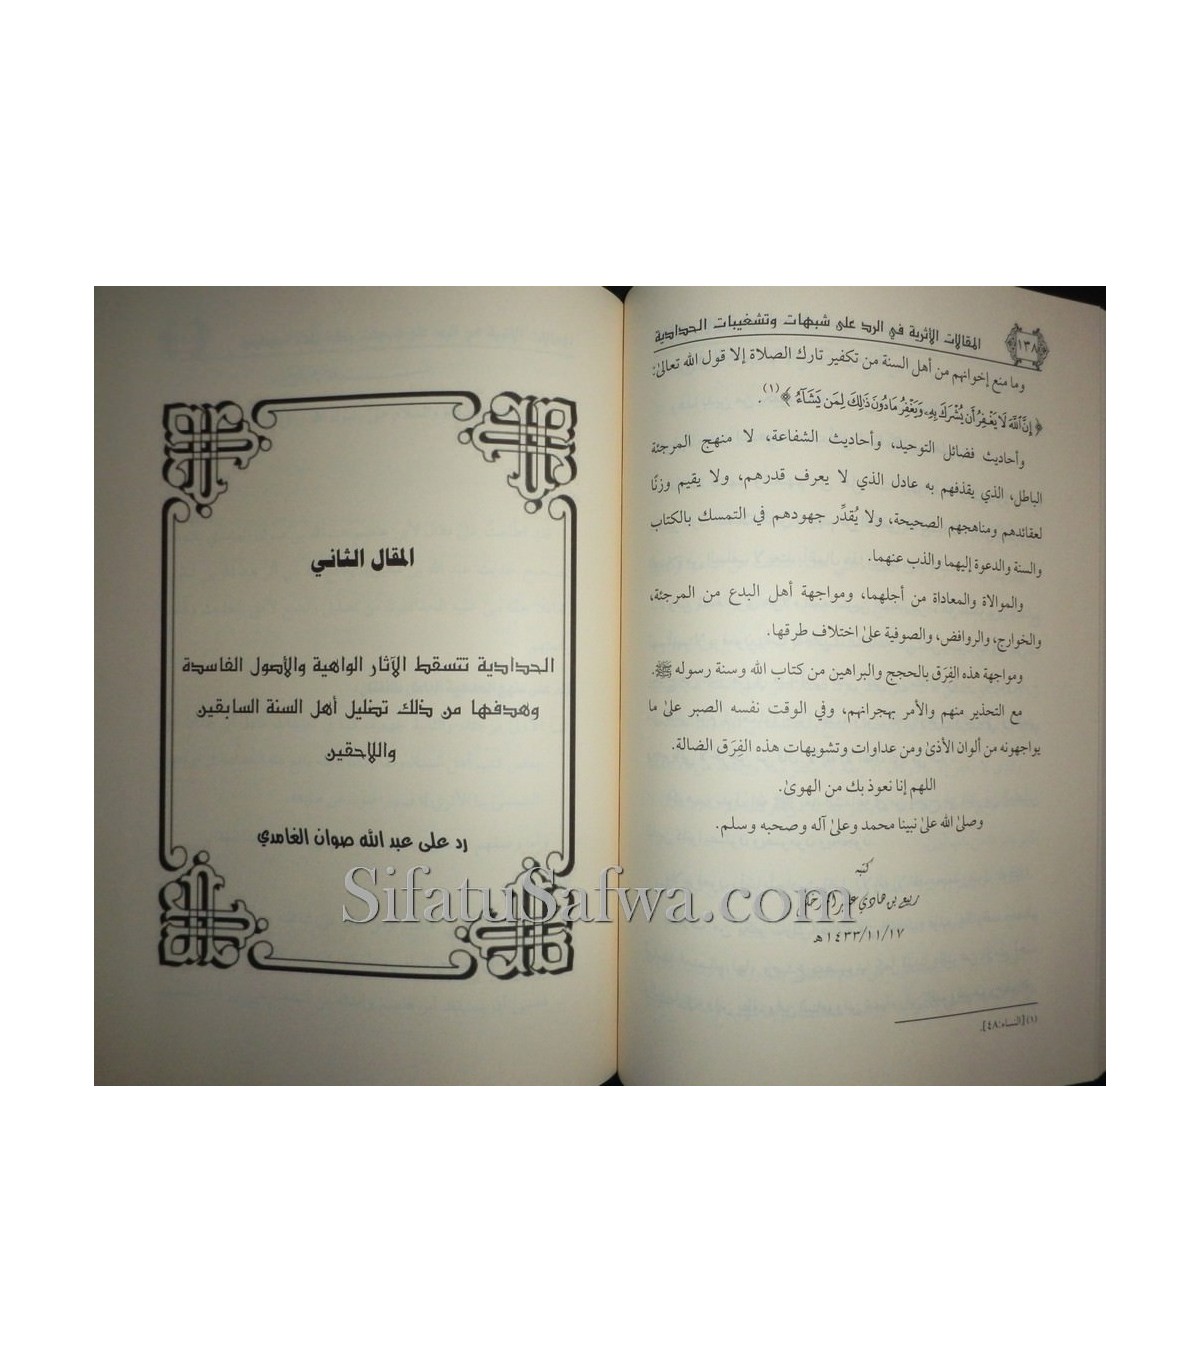 المقالات الأثرية في الرد على شبهات وتشغيبات الحدادية
١٣٨
وما منع إخوانهم من أهل السنة من تكفير تارك الصلاة إلا قول الله تعالىٰ:
﴿إِنَّ ٱللَّهَ لَا يَغْفِرُ أَن يُشْرَكَ بِهِۦ وَيَغْفِرُ مَا دُونَ ذَٰلِكَ لِمَن يَشَآءُ﴾(١).
وأحاديث فضائل التوحيد، وأحاديث الشفاعة، لا منهج المرجئة
الباطل، الذي يقذفهم به عادل الذي لا يعرف قدرهم، ولا يقيم وزنًا
لعقائدهم ومناهجهم الصحيحة، ولا يُقدِّر جهودهم في التمسك بالكتاب
والسنة والدعوة إليهما والذب عنهما.
والموالاة والمعاداة من أجلهما، ومواجهة أهل البدع من المرجئة،
والخوارج، والروافض، والصوفية علىٰ اختلاف طرقها.
ومواجهة هذه الفِرَق بالحجج والبراهين من كتاب الله وسنة رسوله ﷺ.
مع التحذير منهم والأمر بهجرانهم، وفي الوقت نفسه الصبر علىٰ ما
يواجهونه من ألوان الأذىٰ ومن عداوات وتشويهات هذه الفِرَق الضالة.
اللهم إنا نعوذ بك من الهوىٰ.
وصلىٰ الله علىٰ نبينا محمد وعلىٰ آله وصحبه وسلم.
كتبه
ربيع بن هادي عمير المدخلي
١٤٣٣/١١/١٧هـ
(١) [النساء:٤٨].
المقال الثاني
الحدادية تتسقط الآثار الواهية والأصول الفاسدة
وهدفها من ذلك تضليل أهل السنة السابقين
واللاحقين
رد على عبد الله صوان الغامدي
SifatuSafwa.com